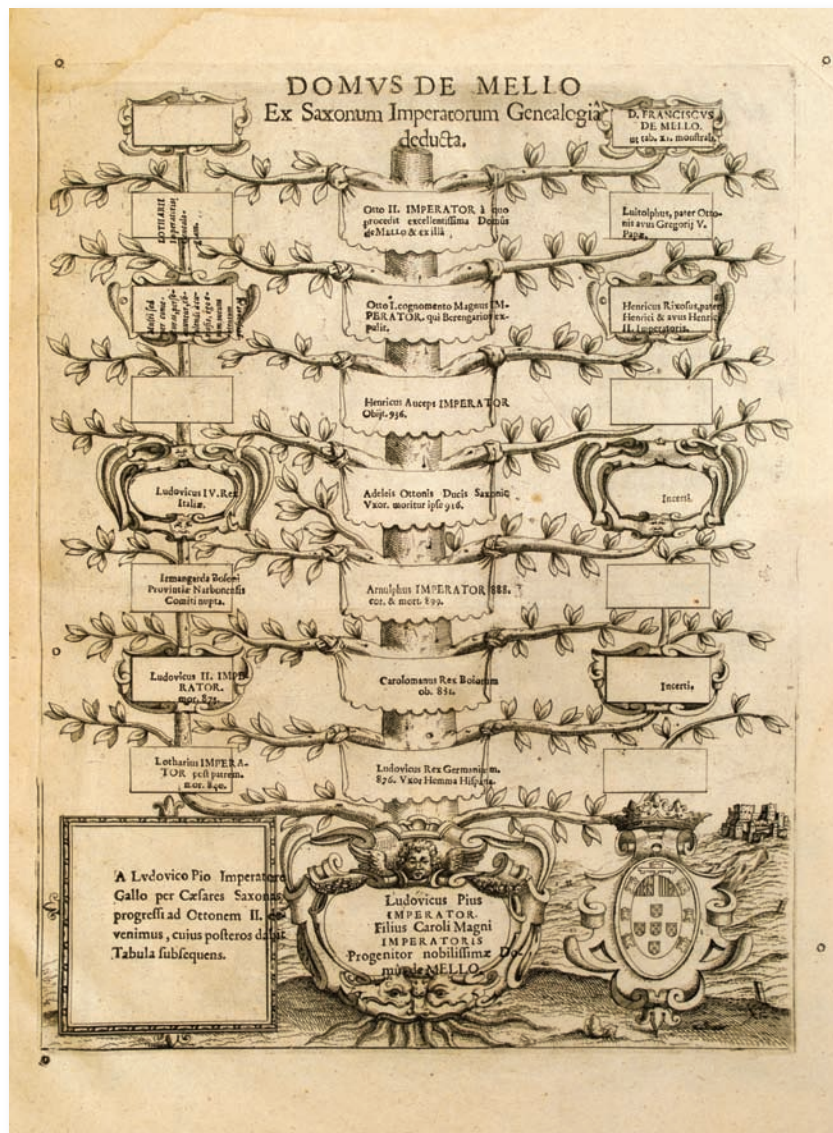 DOMVS DE MELLO
Ex Saxonum Imperatorum Genealogiâ
deducta.
D. FRANCISCVS
DE MELLO.
ut tab. XI. monstrat.
LOTHARII
Otto II. IMPERATOR à quo
procedit excellentissima Domus
de MELLO & ex illâ
Luitolphus, pater Otto-
nis avus Gregorij V.
Papæ.
Otto I. cognomento Magnus IM-
PERATOR. qui Berengarios ex-
pulit.
Henricus Rixosus, pater
Henrici & avus Henrici
II. Imperatoris.
Henricus Auceps IMPERATOR
Obijt. 936.
Ludovicus IV. Rex
Italiæ.
Adeleis Ottonis Ducis Saxoniæ
Vxor. moritur ipse 916.
Incerti.
Irmangarda Bosoni
Provintiæ Narbonensis
Comiti nupta.
Arnulphus IMPERATOR 888.
cor. & mort. 899.
Ludovicus II. IMPE
RATOR.
mor. 875.
Carolomanus Rex Boiorum
ob. 881.
Incerti.
Lotharius IMPERA-
TOR post patrem.
mor. 840.
Ludovicus Rex Germaniæ m.
876. Vxor Hemma Hispana.
A Lvdovico Pio Imperatore
Gallo per Cæsares Saxonas
progressi ad Ottonem II. de-
venimus, cuius posteros dabit
Tabula subsequens.
Ludovicus Pius
IMPERATOR.
Filius Caroli Magni
IMPERATORIS
Progenitor nobilissimæ Do-
mûs de MELLO.